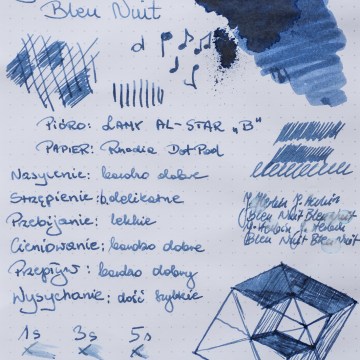 Bleu Nuit
PIÓRO: LAMY AL-STAR „B”
PAPIER: Rhodia DotPad
Nasycenie: bardzo dobre
Strzępienie: b.delikatne
Przebijanie: lekkie
Cieniowanie: bardzo dobre
Przepływ: bardzo dobry
Wysychanie: dość szybkie
J. Herbin J. Herbin
Bleu Nuit Bleu Nuit
J. Herbin J. Herbin
Bleu Nuit Bleu Nuit
1s 3s 5s